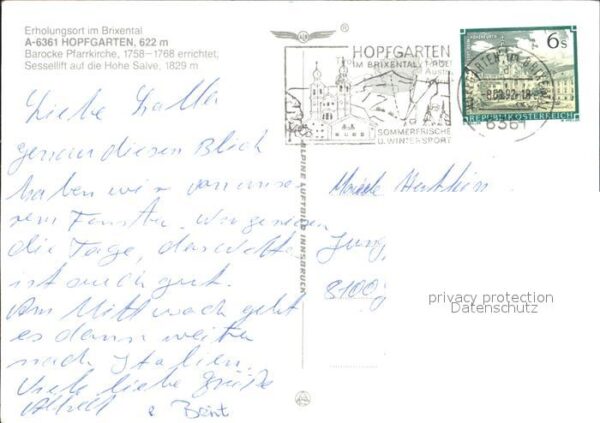 Erholungsort im Brixental
A-6361 HOPFGARTEN, 622 m
Barocke Pfarrkirche, 1758–1768 errichtet;
Sessellift auf die Hohe Salve, 1829 m
Liebe
genau diesen Blick
haben wir von unse-
rem Fenster. Wir geniessen
die Tage, das Wetter
ist auch gut.
Am Mittwoch geht
es dann weiter
nach Italien.
Viele liebe Grüße
ALPINE LUFTBILD INNSBRUCK
HOPFGARTEN
IM BRIXENTAL, TIROL
Austria
SOMMERFRISCHE
U. WINTERSPORT
6361
6 S
REPUBLIK ÖSTERREICH
Jung,
8100
privacy protection
Datenschutz